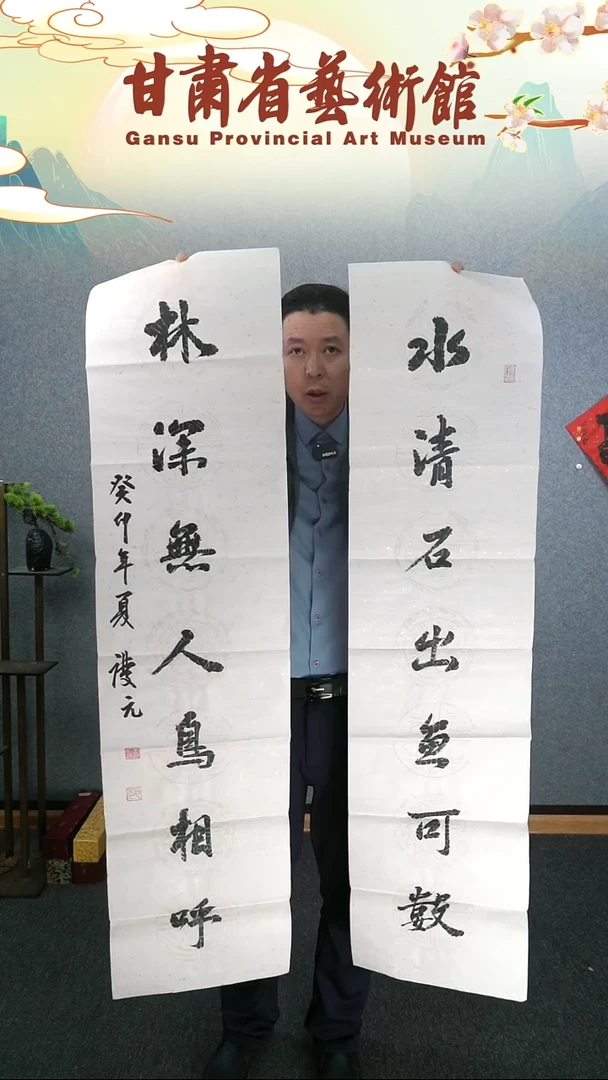 甘肅省藝術館
Gansu Provincial Art Museum
水清石出魚可數
林深無人鳥相呼
癸卯年夏 護元